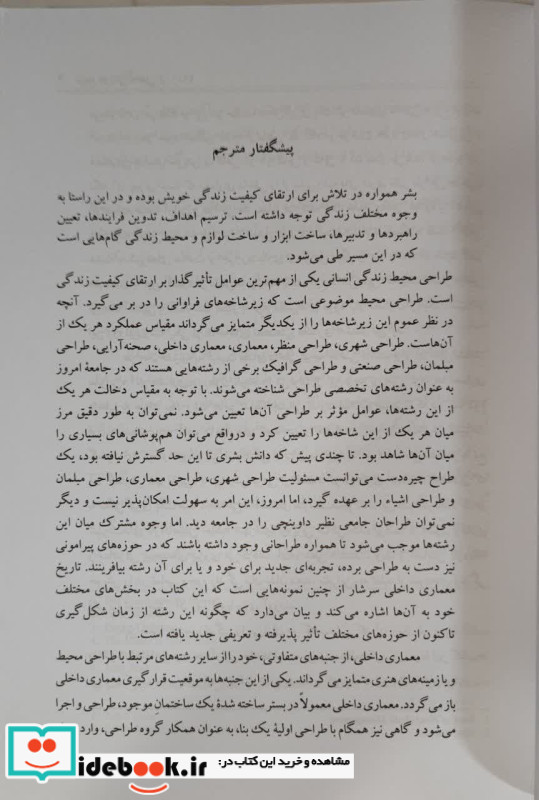 پیشگفتار مترجم
بشر همواره در تلاش برای ارتقای کیفیت زندگی خویش بوده و در این راستا به
وجوه مختلف زندگی توجه داشته است. ترسیم اهداف، تدوین فرایندها، تعیین
راهبردها و تدبیرها، ساخت ابزار و ساخت لوازم و محیط زندگی گام‌هایی است
که در این مسیر طی می‌شود.
طراحی محیط زندگی انسانی یکی از مهم‌ترین عوامل تأثیرگذار بر ارتقای کیفیت زندگی
است. طراحی محیط موضوعی است که زیرشاخه‌های فراوانی را در بر می‌گیرد. آنچه
در نظر عموم این زیرشاخه‌ها را از یکدیگر متمایز می‌گرداند مقیاس عملکرد هر یک از
آن‌هاست. طراحی شهری، طراحی منظر، معماری، معماری داخلی، صحنه‌آرایی، طراحی
مبلمان، طراحی صنعتی و طراحی گرافیک برخی از رشته‌هایی هستند که در جامعهٔ امروز
به عنوان رشته‌های تخصصی طراحی شناخته می‌شوند. با توجه به مقیاس دخالت هر یک
از این رشته‌ها، عوامل مؤثر بر طراحی آن‌ها تعیین می‌شود. نمی‌توان به طور دقیق مرز
میان هر یک از این شاخه‌ها را تعیین کرد و درواقع می‌توان هم‌پوشانی‌های بسیاری را
میان آن‌ها شاهد بود. تا چندی پیش که دانش بشری تا این حد گسترش نیافته بود، یک
طراح چیره‌دست می‌توانست مسئولیت طراحی شهری، طراحی معماری، طراحی مبلمان
و طراحی اشیاء را بر عهده گیرد، اما امروز، این امر به سهولت امکان‌پذیر نیست و دیگر
نمی‌توان طراحان جامعی نظیر داوینچی را در جامعه دید. اما وجوه مشترک میان این
رشته‌ها موجب می‌شود تا همواره طراحانی وجود داشته باشند که در حوزه‌های پیرامونی
نیز دست به طراحی برده، تجربه‌ای جدید برای خود و یا برای آن رشته بیافرینند. تاریخ
معماری داخلی سرشار از چنین نمونه‌هایی است که این کتاب در بخش‌های مختلف
خود به آن‌ها اشاره می‌کند و بیان می‌دارد که چگونه این رشته از زمان شکل‌گیری
تاکنون از حوزه‌های مختلف تأثیر پذیرفته و تعریفی جدید یافته است.
معماری داخلی، از جنبه‌های متفاوتی، خود را از سایر رشته‌های مرتبط با طراحی محیط
و یا زمینه‌های هنری متمایز می‌گرداند. یکی از این جنبه‌ها به موقعیت قرارگیری معماری داخلی
بازمی‌گردد. معماری داخلی معمولاً در بستر ساخته شدهٔ یک ساختمان موجود، طراحی و اجرا
می‌شود و گاهی نیز همگام با طراحی اولیهٔ یک بنا، به عنوان همکار گروه طراحی، وارد
مشاهده و خرید این کتاب در:
idebook.ir